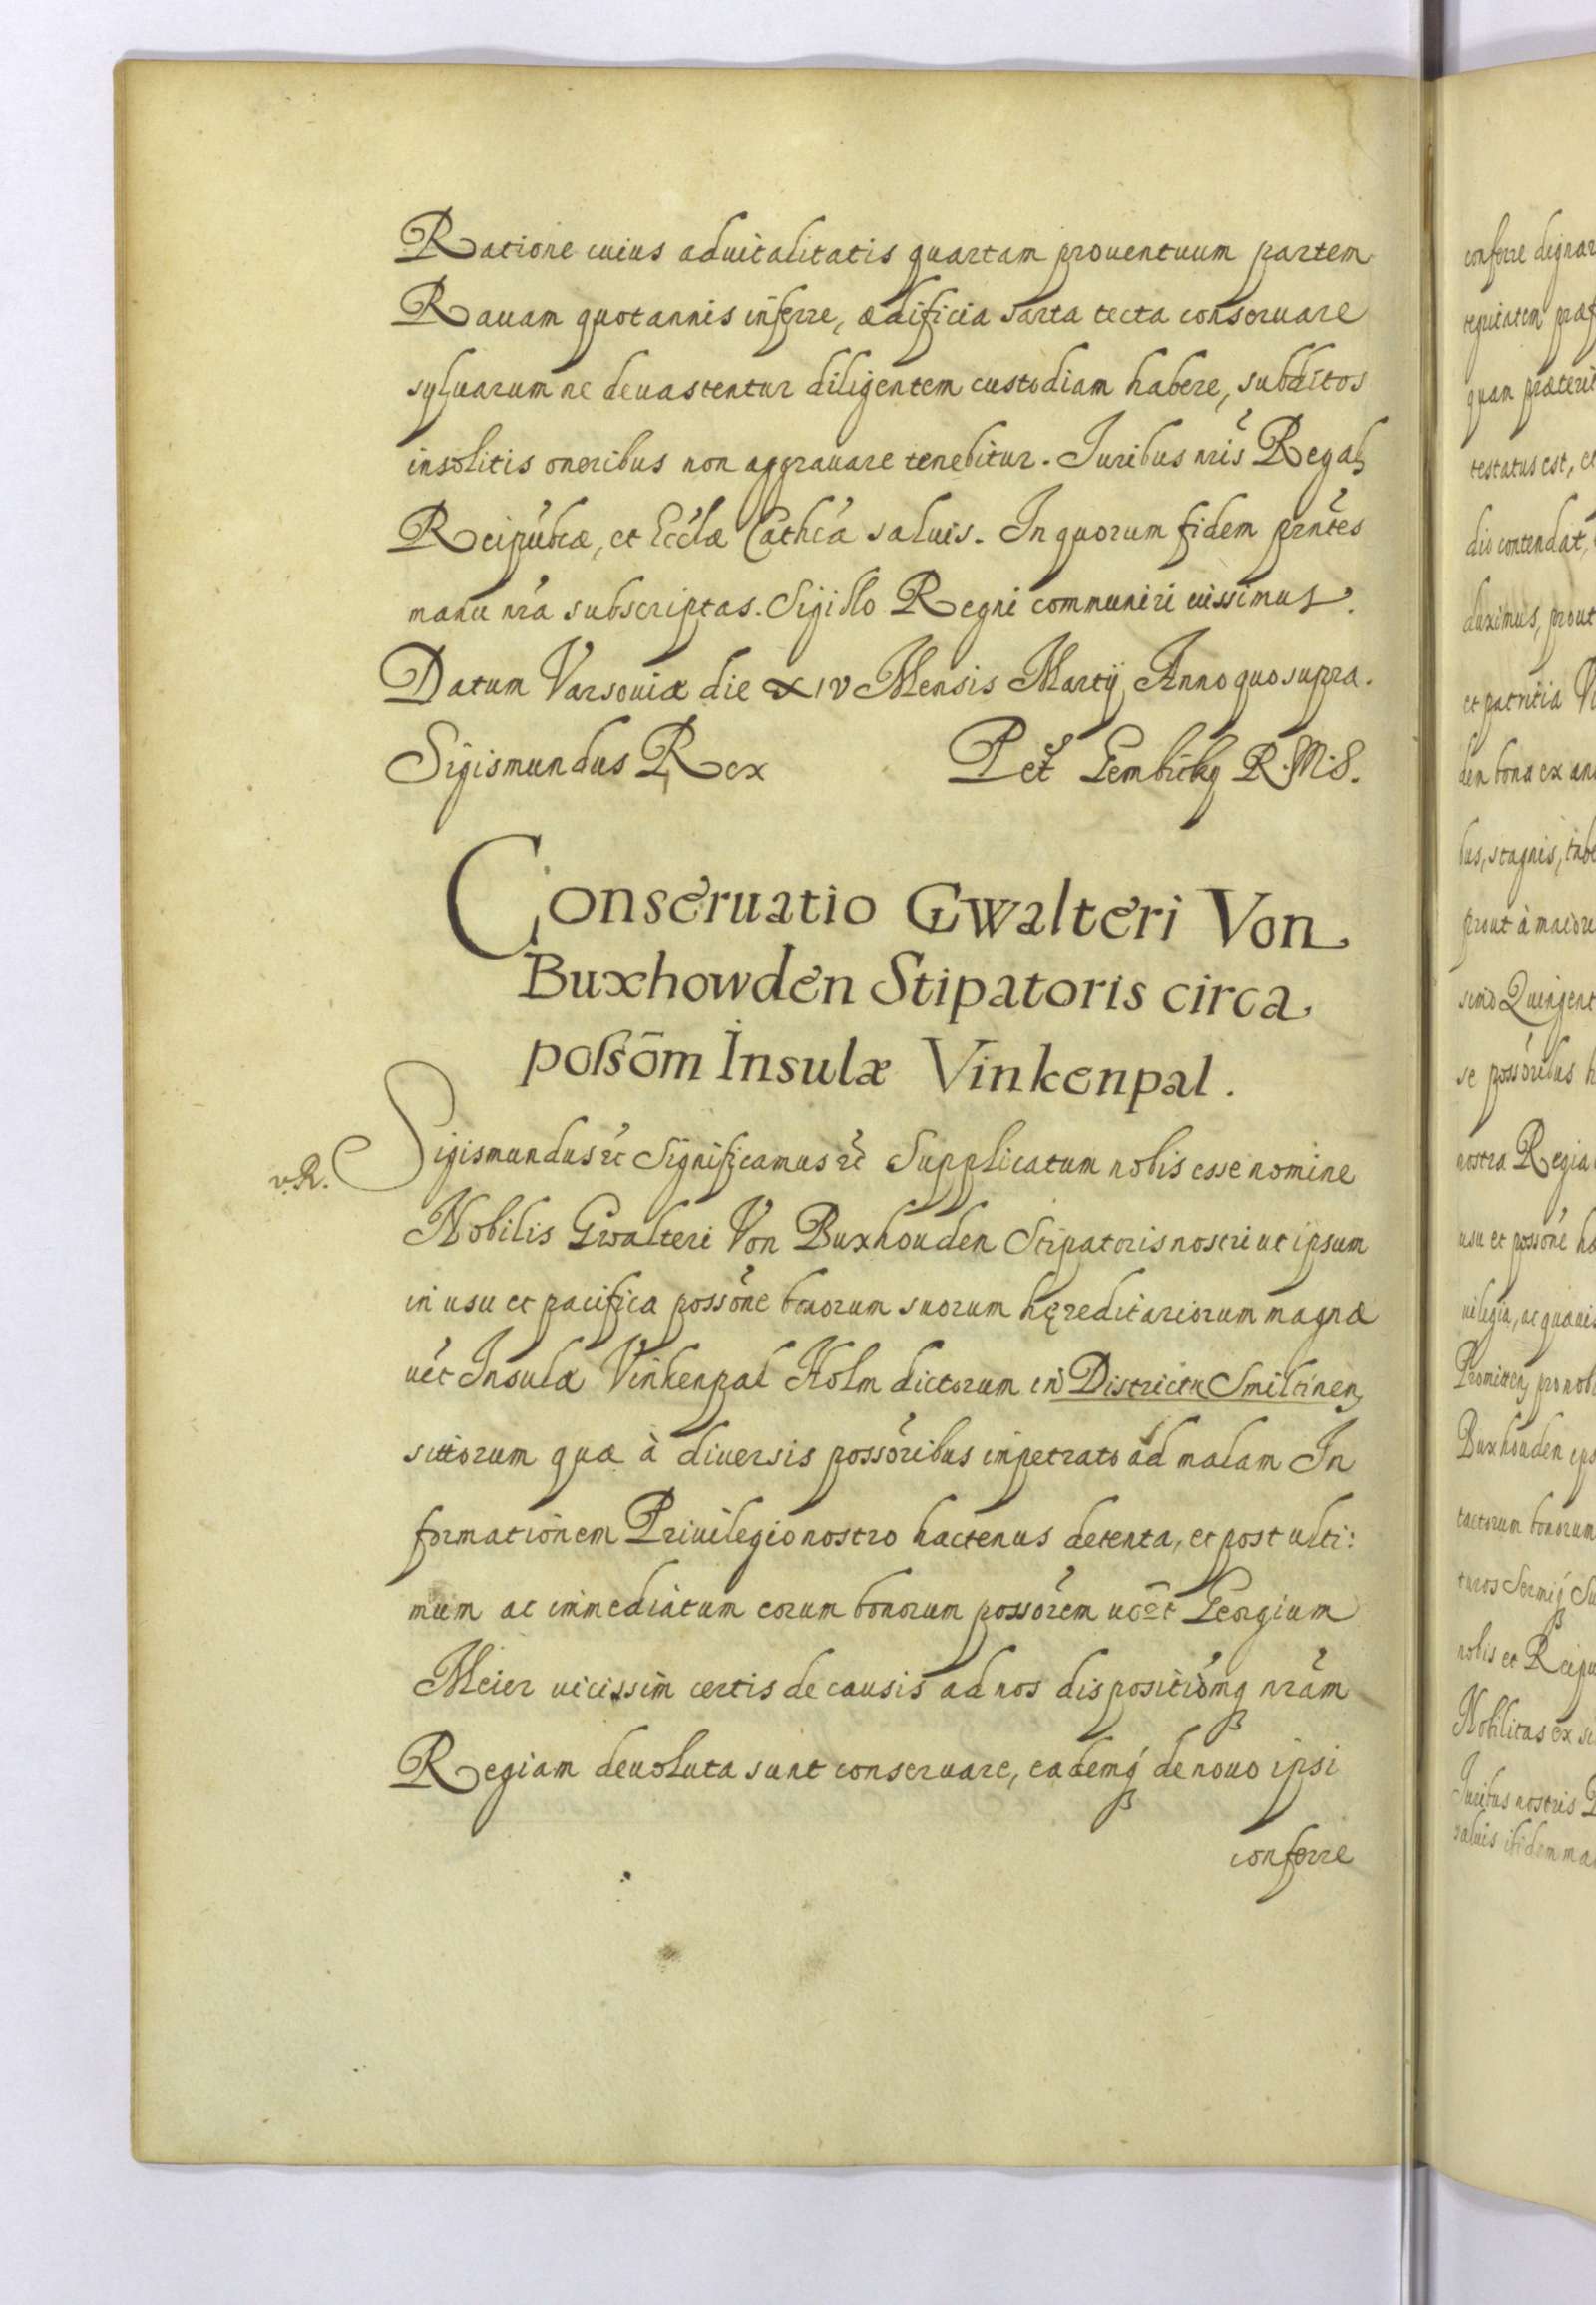 Ratione cuius aduitalitatis quartam prouentuum partem
Rauam quotannis inferre, ædificia sarta tecta conseruare
syluarum ne deuastentur diligentem custodiam habere, subditos
insolitis oneribus non aggrauare tenebitur. Iuribus nris Regalb
Reipubcæ, et Ecclæ Cathca saluis. In quorum fidem prntes
manu nra subscriptas. Sigillo Regni communiri iussimus.
Datum Varsouiæ die XIV Mensis Martij Anno quo supra.
Sigismundus Rex Pet Gembicky R.M.S.
Conseruatio Gwalteri Von
Buxhowden Stipatoris circa
possōm Insulæ Vinkenpal.
v.R.
Sigismundus etc Significamus etc Supplicatum nobis esse nomine
Nobilis Gwalteri Von Buxhouden Stipatoris nostri ut ipsum
in usu et pacifica possone bonorum suorum hęreditariorum magnæ
uct Insulæ Vinkenpal Holm dictorum in Districtu Smiltinen
sittorum quæ à diuersis possoribus impetrato ad malam In
formationem Priuilegio nostro hactenus detenta, et post ulti:
mum ac immediatum eorum bonorum possorem uort Georgium
Meier uicissim certis de causis ad nos dispositiomq nram
Regiam deuoluta sunt conseruare, eademq de nouo ipsi
conferre
conferre dignar
quam præterit
testatus est, et
dio contendat,
duximus, prout
et patritia
den bona ex
bus, stagnis,
prout à maiore
se possoribus
nostra Regia
usu et possone
uilegia, ac quauis
Buxhouden ips
tactorum bonorum
nobis et Reipu
Nobilitas ex
Iuribus nostris
saluis itidem ma